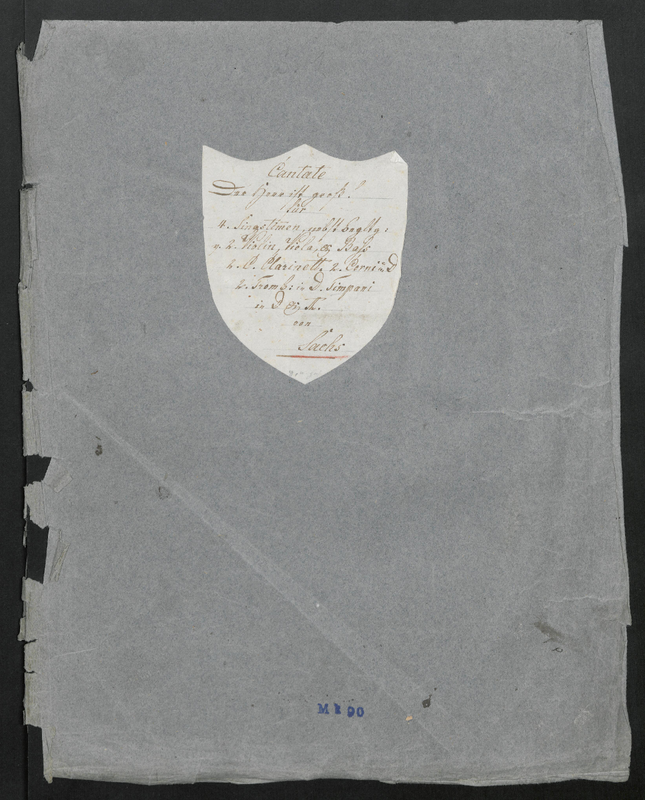 Cantate
Der Herr ist groß!
für
4. Singstimen, nebst Begltg:
v. 2. Violin, Viola, & Bass
2. C. Clarinett, 2. Corni in D
2. Tromb: in D. Timpani
in D & A.
von
Sachs
M 90